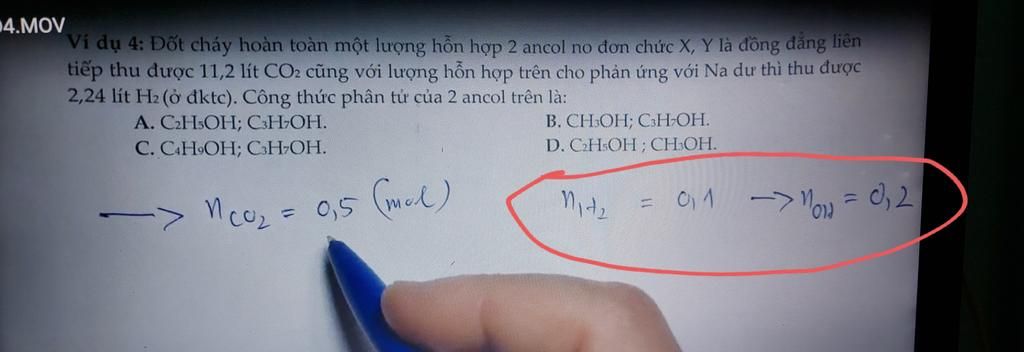 04.MOV
Ví dụ 4: Đốt cháy hoàn toàn một lượng hỗn hợp 2 ancol no đơn chức X, Y là đồng đẳng liên
tiếp thu được 11,2 lít CO₂ cũng với lượng hỗn hợp trên cho phản ứng với Na dư thì thu được
2,24 lít H₂ (ở đktc). Công thức phân tử của 2 ancol trên là:
A. C₂H₅OH; C₃H₇OH. B. CH₃OH; C₃H₇OH.
C. C₄H₉OH; C₃H₇OH. D. C₂H₅OH ; CH₃OH.
→ nCO₂ = 0,5 (mol) nH₂ = 0,1 → nOH = 0,2